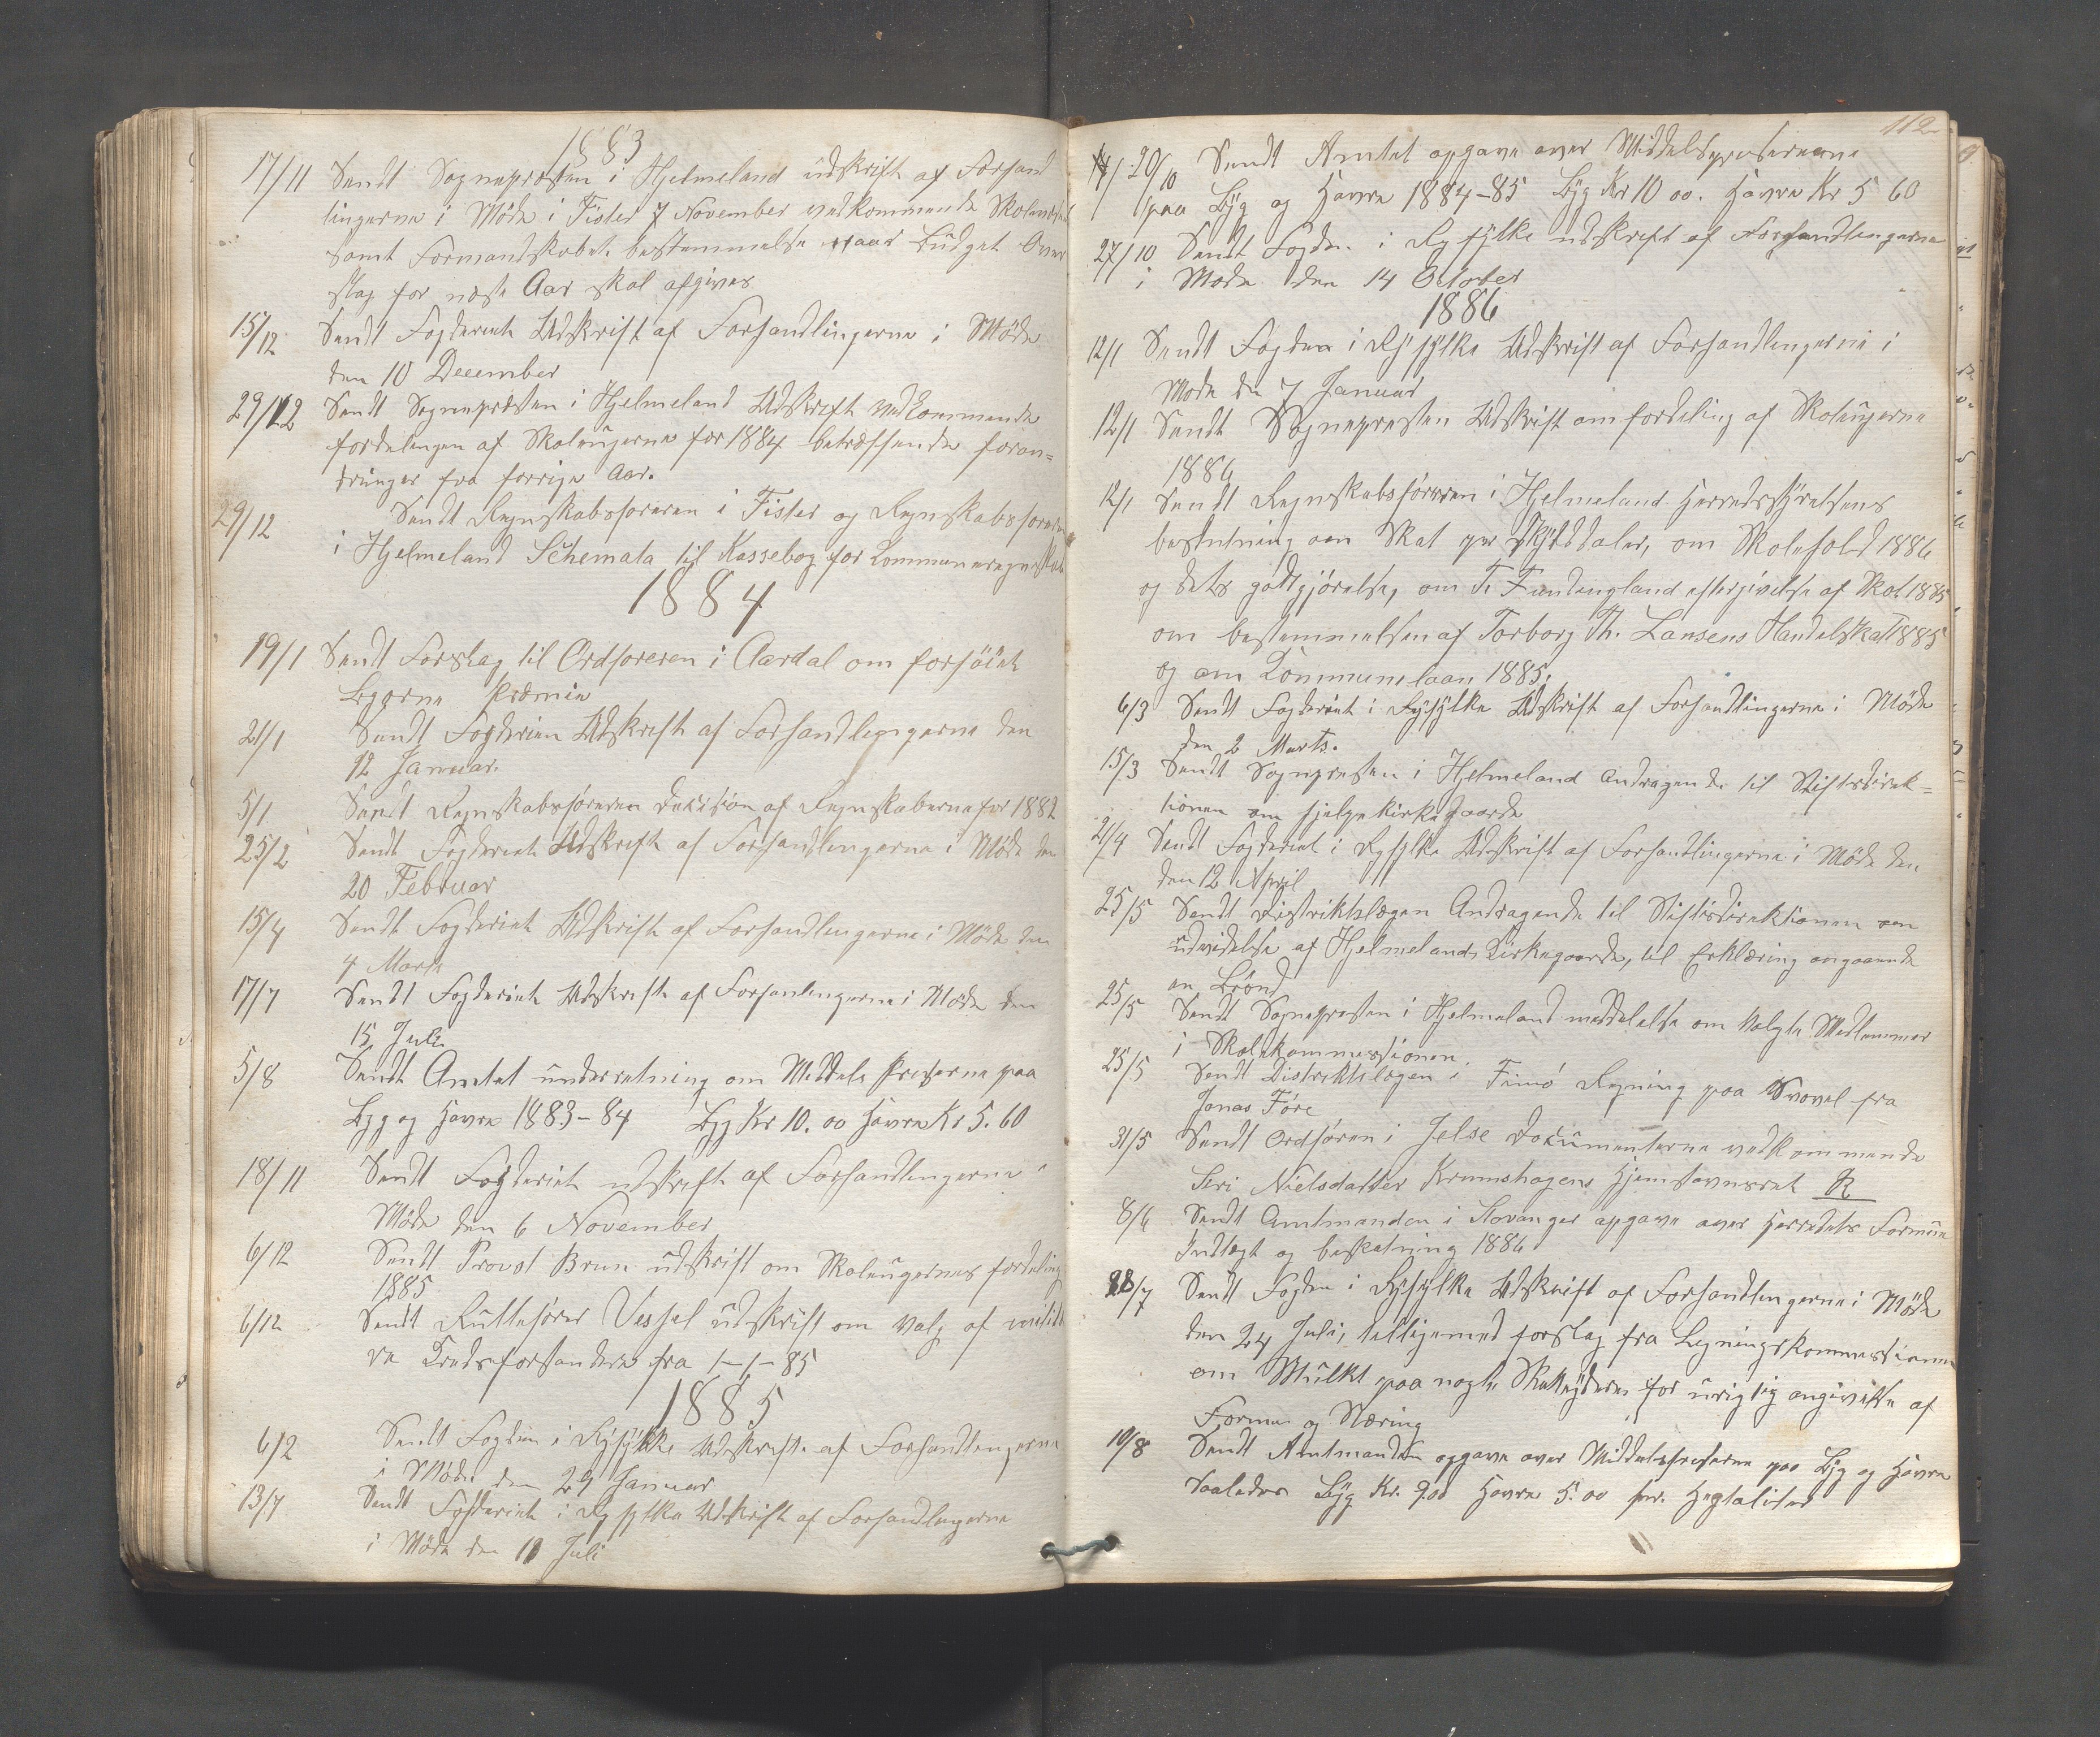 1883
17/11 Sendt Sognepræsten i Hjelmeland üdskrift af Forhand
lingerne i Möde i Fister 7 November vedkommende Skolevæsen
samt Formandskabet bestemmelse naar Büdget Over
slag for næste Aar skal afgives
15/12 Sendt Fogderiet Udskrift af Forhandlingerne i Möde
den 10 December
29/12 Sendt Sognepræsten i Hjelmeland Udskrift vedkommende
fordelingen af Skoleügerne for 1884 betræffende foran=
dringer fra forrige Aar.
29/12 Sendt Regnskabsføreren i Fister og Regnskabsføreren
i Hjelmeland Schemata til Kassebog for Kommuneregnskab
1884
19/1 Sendt Forslag til Ordføreren i Aardal om forhöiet
Præmie
21/1 Sendt Fogderiet Udskrift af Forhandlingerne den
12 Januar.
5/1 Sendt Regnskabsføreren Decision af Regnskaberne for 1882
25/2 Sendt Fogderiet Udskrift af Forhandlingerne i Möde den
20 Februar
15/4 Sendt Fogderiet Udskrift af Forhandlingerne i Möde den
4 Marts
17/7 Sendt Fogderiet Udskrift af Forhanlingerne i Möde den
15 Juli
5/8 Sendt Amtet ünderretning om Middels Priserne paa
Byg og Havre 1883-84 Byg Kr 10.00 Havre Kr 5.60
18/11 Sendt Fogderiet udskrift af Forhandlingerne i
Möde den 6 November
6/12 Sendt Provst Brun üdskrift om Skoleügernes fordeling
1885
6/12 Sendt Rüllefører Vessel üdskrift om Valg af militæ
re Kredsforstandere fra 1-1-85
1885
6/2 Sendt Fogden i Ryfylke Udskrift af Forhandlingerne
i Möde den 29 Januar
13/7 Sendt Fogderiet i Ryfylke Udskrift af Forhandlingerne
i Möde den 11 Juli
112
20/10 Sendt Amtet opgave over Middelspriserne
paa Byg og Havre 1884-85 Byg Kr 10 00. Havre Kr 5 60
27/10 Sendt Fogden i Ryfylke udskrift af Forhandlingerne
i Møde den 14 October
1886
12/1 Sendt Fogden i Ryfylke Udskrift af Forhandlingerne i
Møde den 7 Januar
12/1 Sendt Sognepresten Udskrift om fordeling af Skoleügerne
1886
12/1 Sendt Regnskabsføreren i Hjelmeland Herredsstyrelsens
beslutning om Skat per Skylddaler, om Skolehold 1886
og dets godtgjörelse, om T. Fundingsland eftergivelse af Skat 1885
om bestemmelsen af Torborg Th. Larsens Handelskat 1885
og om Kommunelaan 1885.
6/3 Sendt Fogderiet i Ryfylke Udskrift af Forhandlingerne i Möde
den 2 Marts.
15/3 Sendt Sognpresten i Hjelmeland Andragende til Stiftsdirek=
tionen om hjelpekirkegaarde
21/4 Sendt Fogderiet i Ryfylke Udskrift af Forhandlingerne i Möde den
den 12 April
25/5 Sendt Distriktslægen Andragende til Stiftsdirektionen om
üdvidelse af Hjelmelands Kirkegaarde, til Erklæring angaaende
en Brönd
25/5 Sendt Sognepresten i Hjelmeland meddelelse om Valgte Medlemmer
i Skolekommissionen
25/5 Sendt Distriktslægen i Finnö Regning paa Svovel fra
Jonas Före
31/5 Sendt Ordfören i Jelse Documenterne vedkommende
Siri Nielsdatter Krunshagens Hjemstavnsret R
8/6 Sendt Amtmanden i Stavanger opgave over Herredets Formüe
Indtægt og beskatning 1886
28/7 Sendt Fogden i Ryfylke Udskrift af Forhandlingerne i Möde
den 24 Juli, tilligemed forslag fra Ligningskommissionen
om Mülkt paa nogle Skatteydere for ürigtig angivelse af
Formue og Næring
10/8 Sendt Amtmanden opgave over Middelspriserne paa Byg og Havre
saaledes Byg Kr. 9.00 Havre 5.00 pr. Hegtoliter